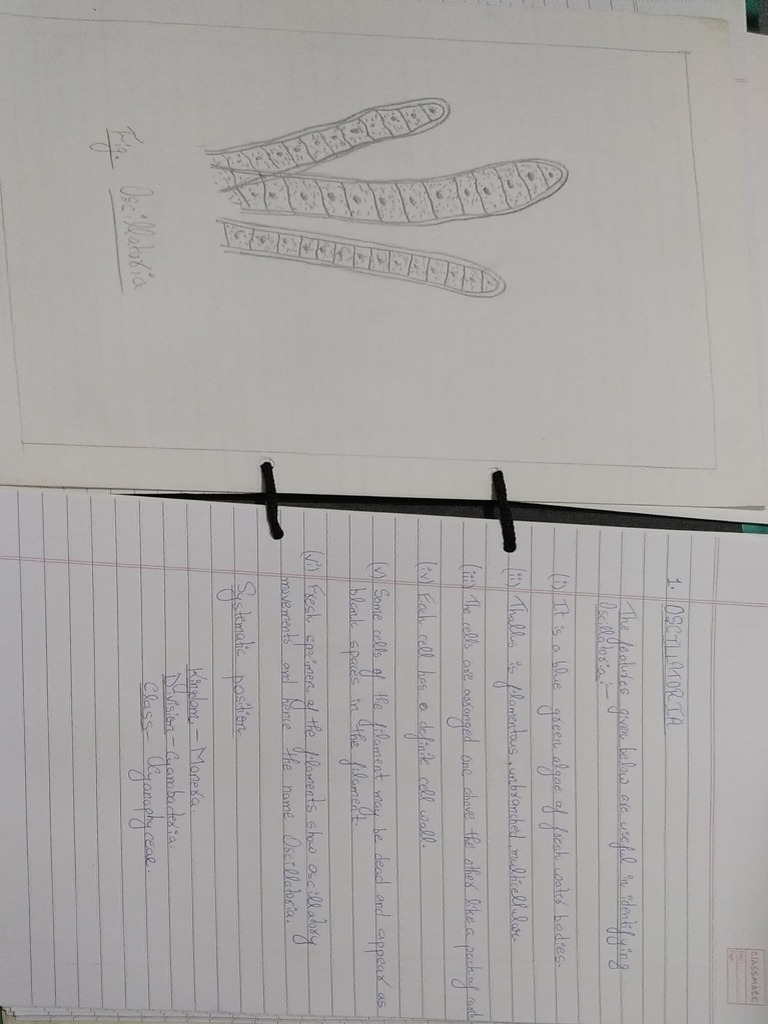 Fig. Oscillatoria
classmate
1. OSCILLATORIA
The features given below are useful in identifying
Oscillatoria:-
(i) It is a blue green algae of fresh water bodies.
(ii) Thallus is filamentous, unbranched, multicellular.
(iii) The cells are arranged one above the other like a pack of
(iv) Each cell has a definite cell wall.
(v) Some cells of the filament may be dead and appear as
blank spaces in the filament.
(vi) Fresh specimen of the filaments show oscillatory
movements and hence the name Oscillatoria.
Systematic position
Kingdom - Monera
Division - Cyanobacteria
Class - Cyanophyceae.